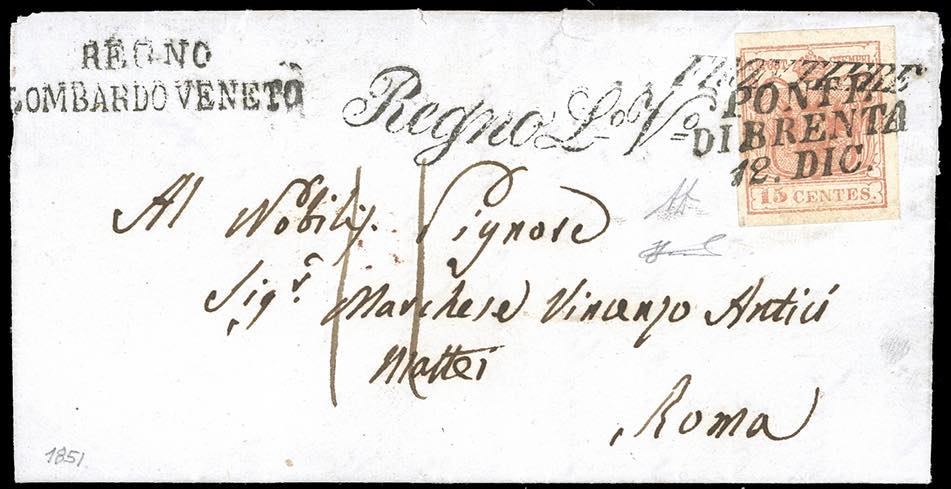 REGNO
LOMBARDO VENETO
Regno L.do V.o
PONTE
DI BRENTA
12. DIC.
15 CENTES.
Al Nobilis. Signore
Sigr. Marchese Vincenzo Antici
Mattei
Roma
1851